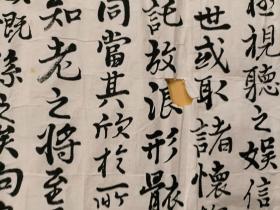 極視聽之娛信
世或取諸懷
託放浪形骸
同當其欣於所
知老之將至
慨係之矣向